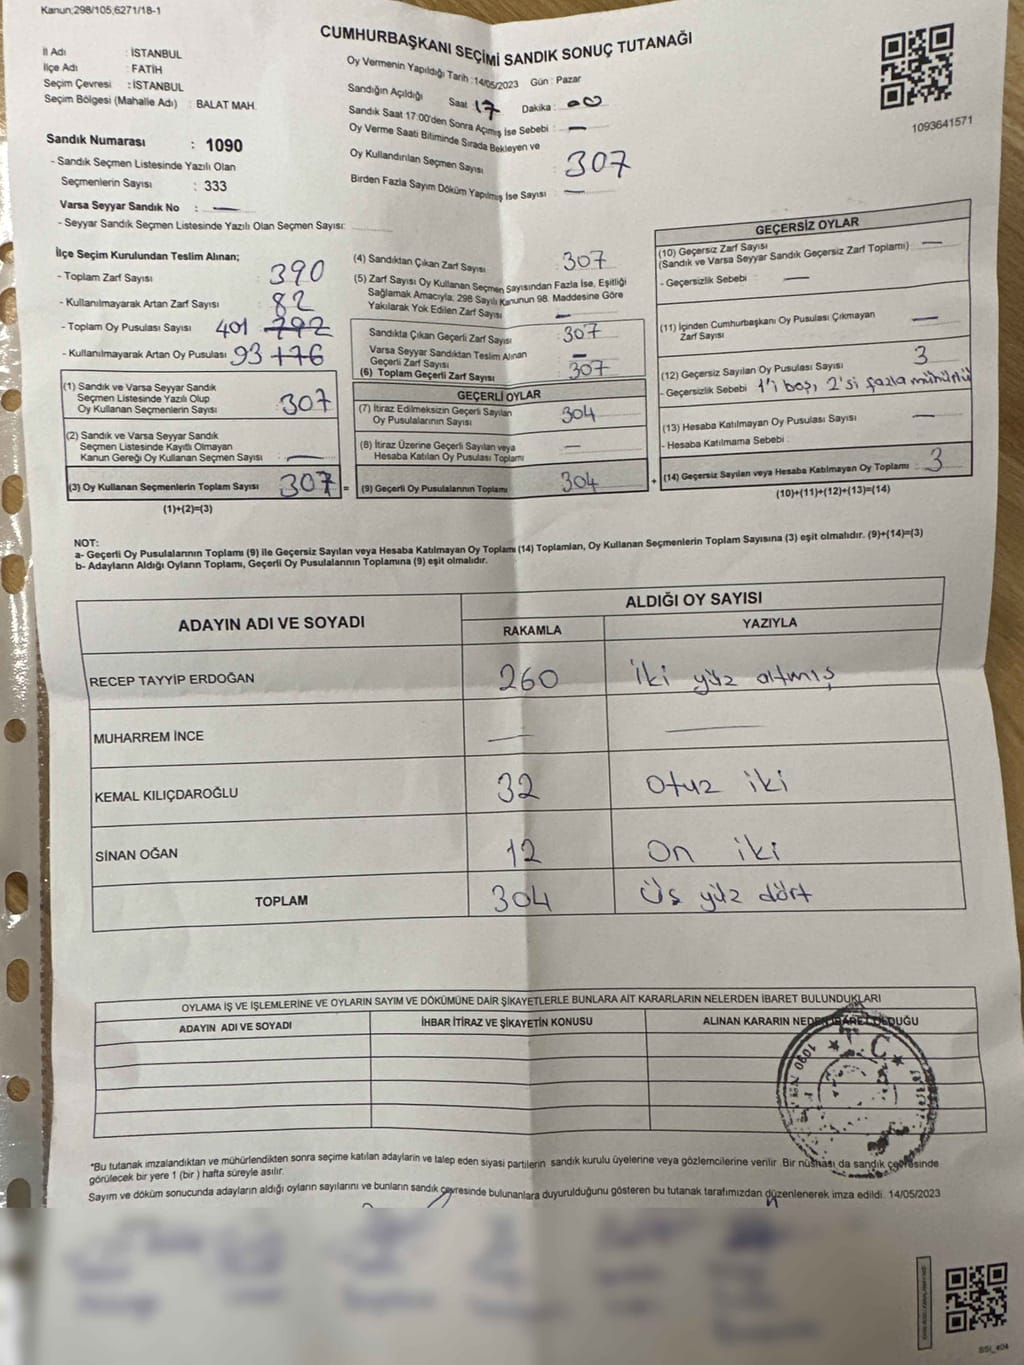 Kanun;298/105,6271/18-1
CUMHURBAŞKANI SEÇİMİ SANDIK SONUÇ TUTANAĞI
İl Adı : İSTANBUL
İlçe Adı : FATİH
Seçim Çevresi : İSTANBUL
Seçim Bölgesi (Mahalle Adı) : BALAT MAH
Oy Vermenin Yapıldığı Tarih :14/05/2023 Gün : Pazar
Sandığın Açıldığı Saat 17 Dakika : 00
Sandık Saat 17:00'den Sonra Açımış İse Sebebi : —
Oy Verme Saati Bitiminde Sırada Bekleyen ve
Oy Kullandırılan Seçmen Sayısı : 307
Birden Fazla Sayım Döküm Yapılmış İse Sayısı : —
1093641571
Sandık Numarası : 1090
- Sandık Seçmen Listesinde Yazılı Olan
Seçmenlerin Sayısı : 333
Varsa Seyyar Sandık No : —
- Seyyar Sandık Seçmen Listesinde Yazılı Olan Seçmen Sayısı:
İlçe Seçim Kurulundan Teslim Alınan;
- Toplam Zarf Sayısı : 390
- Kullanılmayarak Artan Zarf Sayısı : 82
- Toplam Oy Pusulası Sayısı 401 792
- Kullanılmayarak Artan Oy Pusulası 93 +76
(1) Sandık ve Varsa Seyyar Sandık
Seçmen Listesinde Yazılı Olup
Oy Kullanan Seçmenlerin Sayısı : 307
(2) Sandık ve Varsa Seyyar Sandık
Seçmen Listesinde Kayıtlı Olmayan
Kanun Gereği Oy Kullanan Seçmen Sayısı : —
(3) Oy Kullanan Seçmenlerin Toplam Sayısı 307 =
(1)+(2)=(3)
(4) Sandıktan Çıkan Zarf Sayısı 307
(5) Zarf Sayısı Oy Kullanan Seçmen Sayısından Fazla İse, Eşitliği
Sağlamak Amacıyla; 298 Sayılı Kanunun 98. Maddesine Göre
Yakılarak Yok Edilen Zarf Sayısı —
Sandıkta Çıkan Geçerli Zarf Sayısı 307
Varsa Seyyar Sandıktan Teslim Alınan
Geçerli Zarf Sayısı —
(6) Toplam Geçerli Zarf Sayısı 307
GEÇERLİ OYLAR
(7) İtiraz Edilmeksizin Geçerli Sayılan
Oy Pusulalarının Sayısı 304
(8) İtiraz Üzerine Geçerli Sayılan veya
Hesaba Katılan Oy Pusulası Toplamı —
(9) Geçerli Oy Pusulalarının Toplamı 304 +
GEÇERSİZ OYLAR
(10) Geçersiz Zarf Sayısı
(Sandık ve Varsa Seyyar Sandık Geçersiz Zarf Toplamı) —
- Geçersizlik Sebebi : —
(11) İçinden Cumhurbaşkanı Oy Pusulası Çıkmayan
Zarf Sayısı —
(12) Geçersiz Sayılan Oy Pusulası Sayısı 3
- Geçersizlik Sebebi 1'i boş, 2'si fazla mühürlü
(13) Hesaba Katılmayan Oy Pusulası Sayısı —
- Hesaba Katılmama Sebebi :
(14) Geçersiz Sayılan veya Hesaba Katılmayan Oy Toplamı : 3
(10)+(11)+(12)+(13)=(14)
NOT:
a- Geçerli Oy Pusulalarının Toplamı (9) ile Geçersiz Sayılan veya Hesaba Katılmayan Oy Toplamı (14) Toplamları, Oy Kullanan Seçmenlerin Toplam Sayısına (3) eşit olmalıdır. (9)+(14)=(3)
b- Adayların Aldığı Oyların Toplamı, Geçerli Oy Pusulalarının Toplamına (9) eşit olmalıdır.
ADAYIN ADI VE SOYADI ALDIĞI OY SAYISI
RAKAMLA YAZIYLA
RECEP TAYYİP ERDOĞAN 260 İki yüz altmış
MUHARREM İNCE — —
KEMAL KILIÇDAROĞLU 32 Otuz iki
SİNAN OĞAN 12 On iki
TOPLAM 304 Üş yüz dört
OYLAMA İŞ VE İŞLEMLERİNE VE OYLARIN SAYIM VE DÖKÜMÜNE DAİR ŞİKAYETLERLE BUNLARA AİT KARARLARIN NELERDEN İBARET BULUNDUKLARI
ADAYIN ADI VE SOYADI İHBAR İTİRAZ VE ŞİKAYETİN KONUSU ALINAN KARARIN NEDEN İBARET OLDUĞU
T.C.
1090
*Bu tutanak imzalandıktan ve mühürlendikten sonra seçime katılan adayların ve talep eden siyasi partilerin sandık kurulu üyelerine veya gözlemcilerine verilir. Bir nüshası da sandık çevresinde
görülecek bir yere 1 (bir ) hafta süreyle asılır.
Sayım ve döküm sonucunda adayların aldığı oyların sayılarını ve bunların sandık çevresinde bulunanlara duyurulduğunu gösteren bu tutanak tarafımızdan düzenlenerek imza edildi. 14/05/2023
SSI_404